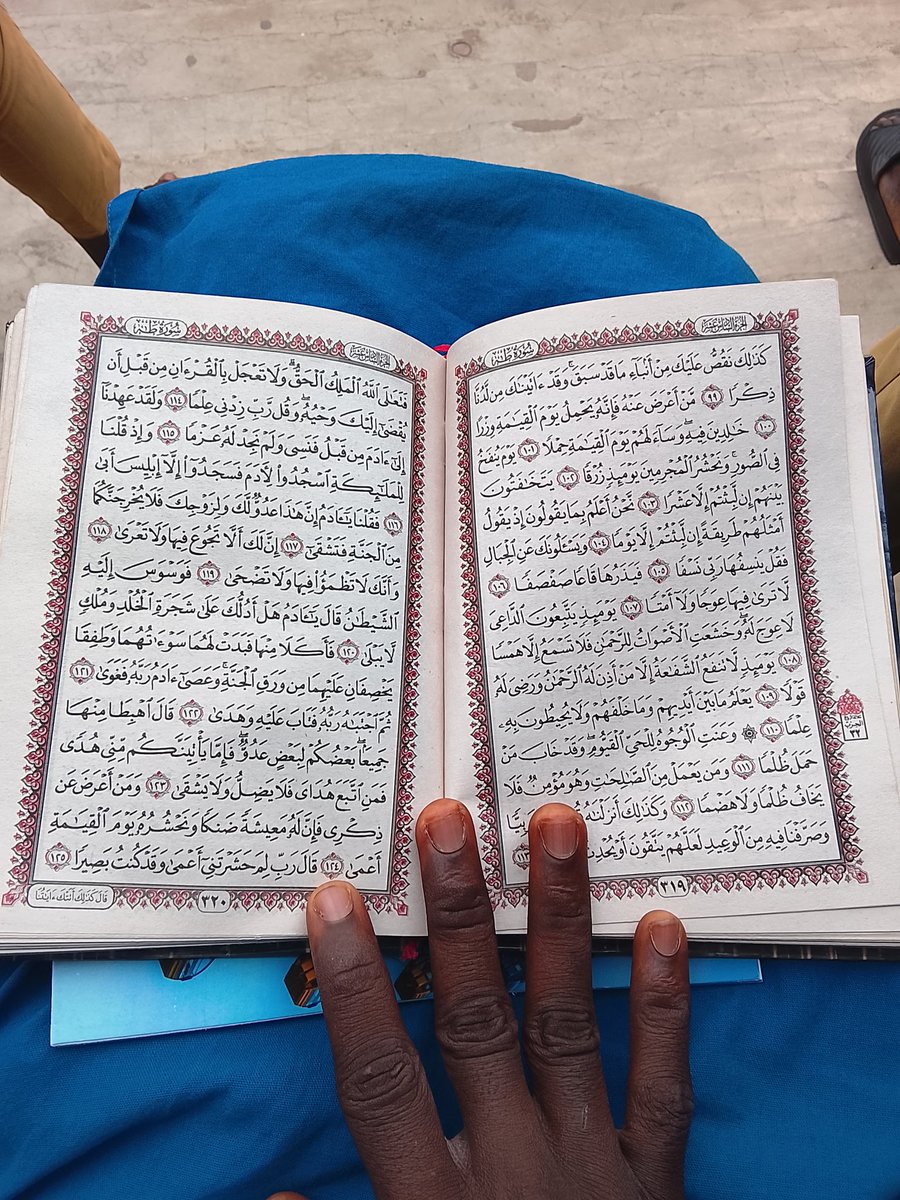 الجزء السادس عشر
سورة طه
كَذَٰلِكَ نَقُصُّ عَلَيْكَ مِنْ أَنۢبَآءِ مَا قَدْ سَبَقَ ۚ وَقَدْ ءَاتَيْنَٰكَ مِن لَّدُنَّا
ذِكْرًا ٩٩ مَّنْ أَعْرَضَ عَنْهُ فَإِنَّهُۥ يَحْمِلُ يَوْمَ ٱلْقِيَٰمَةِ وِزْرًا
١٠٠ خَٰلِدِينَ فِيهِ ۖ وَسَآءَ لَهُمْ يَوْمَ ٱلْقِيَٰمَةِ حِمْلًا ١٠١ يَوْمَ يُنفَخُ
فِى ٱلصُّورِ ۚ وَنَحْشُرُ ٱلْمُجْرِمِينَ يَوْمَئِذٍ زُرْقًا ١٠٢ يَتَخَٰفَتُونَ
بَيْنَهُمْ إِن لَّبِثْتُمْ إِلَّا عَشْرًا ١٠٣ نَّحْنُ أَعْلَمُ بِمَا يَقُولُونَ إِذْ يَقُولُ
أَمْثَلُهُمْ طَرِيقَةً إِن لَّبِثْتُمْ إِلَّا يَوْمًا ١٠٤ وَيَسْـَٔلُونَكَ عَنِ ٱلْجِبَالِ
فَقُلْ يَنسِفُهَا رَبِّى نَسْفًا ١٠٥ فَيَذَرُهَا قَاعًا صَفْصَفًا ١٠٦
لَّا تَرَىٰ فِيهَا عِوَجًا وَلَآ أَمْتًا ١٠٧ يَوْمَئِذٍ يَتَّبِعُونَ ٱلدَّاعِىَ
لَا عِوَجَ لَهُۥ ۖ وَخَشَعَتِ ٱلْأَصْوَاتُ لِلرَّحْمَٰنِ فَلَا تَسْمَعُ إِلَّا هَمْسًا
١٠٨ يَوْمَئِذٍ لَّا تَنفَعُ ٱلشَّفَٰعَةُ إِلَّا مَنْ أَذِنَ لَهُ ٱلرَّحْمَٰنُ وَرَضِىَ لَهُۥ
قَوْلًا ١٠٩ يَعْلَمُ مَا بَيْنَ أَيْدِيهِمْ وَمَا خَلْفَهُمْ وَلَا يُحِيطُونَ بِهِۦ
عِلْمًا ١١٠ ۞ وَعَنَتِ ٱلْوُجُوهُ لِلْحَىِّ ٱلْقَيُّومِ ۖ وَقَدْ خَابَ مَنْ
حَمَلَ ظُلْمًا ١١١ وَمَن يَعْمَلْ مِنَ ٱلصَّٰلِحَٰتِ وَهُوَ مُؤْمِنٌ فَلَا
يَخَافُ ظُلْمًا وَلَا هَضْمًا ١١٢ وَكَذَٰلِكَ أَنزَلْنَٰهُ
وَصَرَّفْنَا فِيهِ مِنَ ٱلْوَعِيدِ لَعَلَّهُمْ يَتَّقُونَ أَوْ يُحْدِثُ
٣١٩
الحزب
٣٢
الجزء السادس عشر
سورة طه
فَتَعَٰلَى ٱللَّهُ ٱلْمَلِكُ ٱلْحَقُّ ۗ وَلَا تَعْجَلْ بِٱلْقُرْءَانِ مِن قَبْلِ أَن
يُقْضَىٰٓ إِلَيْكَ وَحْيُهُۥ ۖ وَقُل رَّبِّ زِدْنِى عِلْمًا ١١٤ وَلَقَدْ عَهِدْنَآ
إِلَىٰٓ ءَادَمَ مِن قَبْلُ فَنَسِىَ وَلَمْ نَجِدْ لَهُۥ عَزْمًا ١١٥ وَإِذْ قُلْنَا
لِلْمَلَٰٓئِكَةِ ٱسْجُدُوا۟ لِءَادَمَ فَسَجَدُوٓا۟ إِلَّآ إِبْلِيسَ أَبَىٰ
١١٦ فَقُلْنَا يَٰٓـَٔادَمُ إِنَّ هَٰذَا عَدُوٌّ لَّكَ وَلِزَوْجِكَ فَلَا يُخْرِجَنَّكُمَا
مِنَ ٱلْجَنَّةِ فَتَشْقَىٰٓ ١١٧ إِنَّ لَكَ أَلَّا تَجُوعَ فِيهَا وَلَا تَعْرَىٰ ١١٨
وَأَنَّكَ لَا تَظْمَؤُا۟ فِيهَا وَلَا تَضْحَىٰ ١١٩ فَوَسْوَسَ إِلَيْهِ
ٱلشَّيْطَٰنُ قَالَ يَٰٓـَٔادَمُ هَلْ أَدُلُّكَ عَلَىٰ شَجَرَةِ ٱلْخُلْدِ وَمُلْكٍ
لَّا يَبْلَىٰ ١٢٠ فَأَكَلَا مِنْهَا فَبَدَتْ لَهُمَا سَوْءَٰتُهُمَا وَطَفِقَا
يَخْصِفَانِ عَلَيْهِمَا مِن وَرَقِ ٱلْجَنَّةِ ۚ وَعَصَىٰٓ ءَادَمُ رَبَّهُۥ فَغَوَىٰ ١٢١
ثُمَّ ٱجْتَبَٰهُ رَبُّهُۥ فَتَابَ عَلَيْهِ وَهَدَىٰ ١٢٢ قَالَ ٱهْبِطَا مِنْهَا
جَمِيعًۢا ۖ بَعْضُكُمْ لِبَعْضٍ عَدُوٌّ ۖ فَإِمَّا يَأْتِيَنَّكُم مِّنِّى هُدًى
فَمَنِ ٱتَّبَعَ هُدَاىَ فَلَا يَضِلُّ وَلَا يَشْقَىٰ ١٢٣ وَمَنْ أَعْرَضَ عَن
ذِكْرِى فَإِنَّ لَهُۥ مَعِيشَةً ضَنكًا وَنَحْشُرُهُۥ يَوْمَ ٱلْقِيَٰمَةِ
أَعْمَىٰ ١٢٤ قَالَ رَبِّ لِمَ حَشَرْتَنِىٓ أَعْمَىٰ وَقَدْ كُنتُ بَصِيرًا ١٢٥
٣٢٠
قَالَ كَذَٰلِكَ أَتَتْكَ ءَايَٰتُنَا